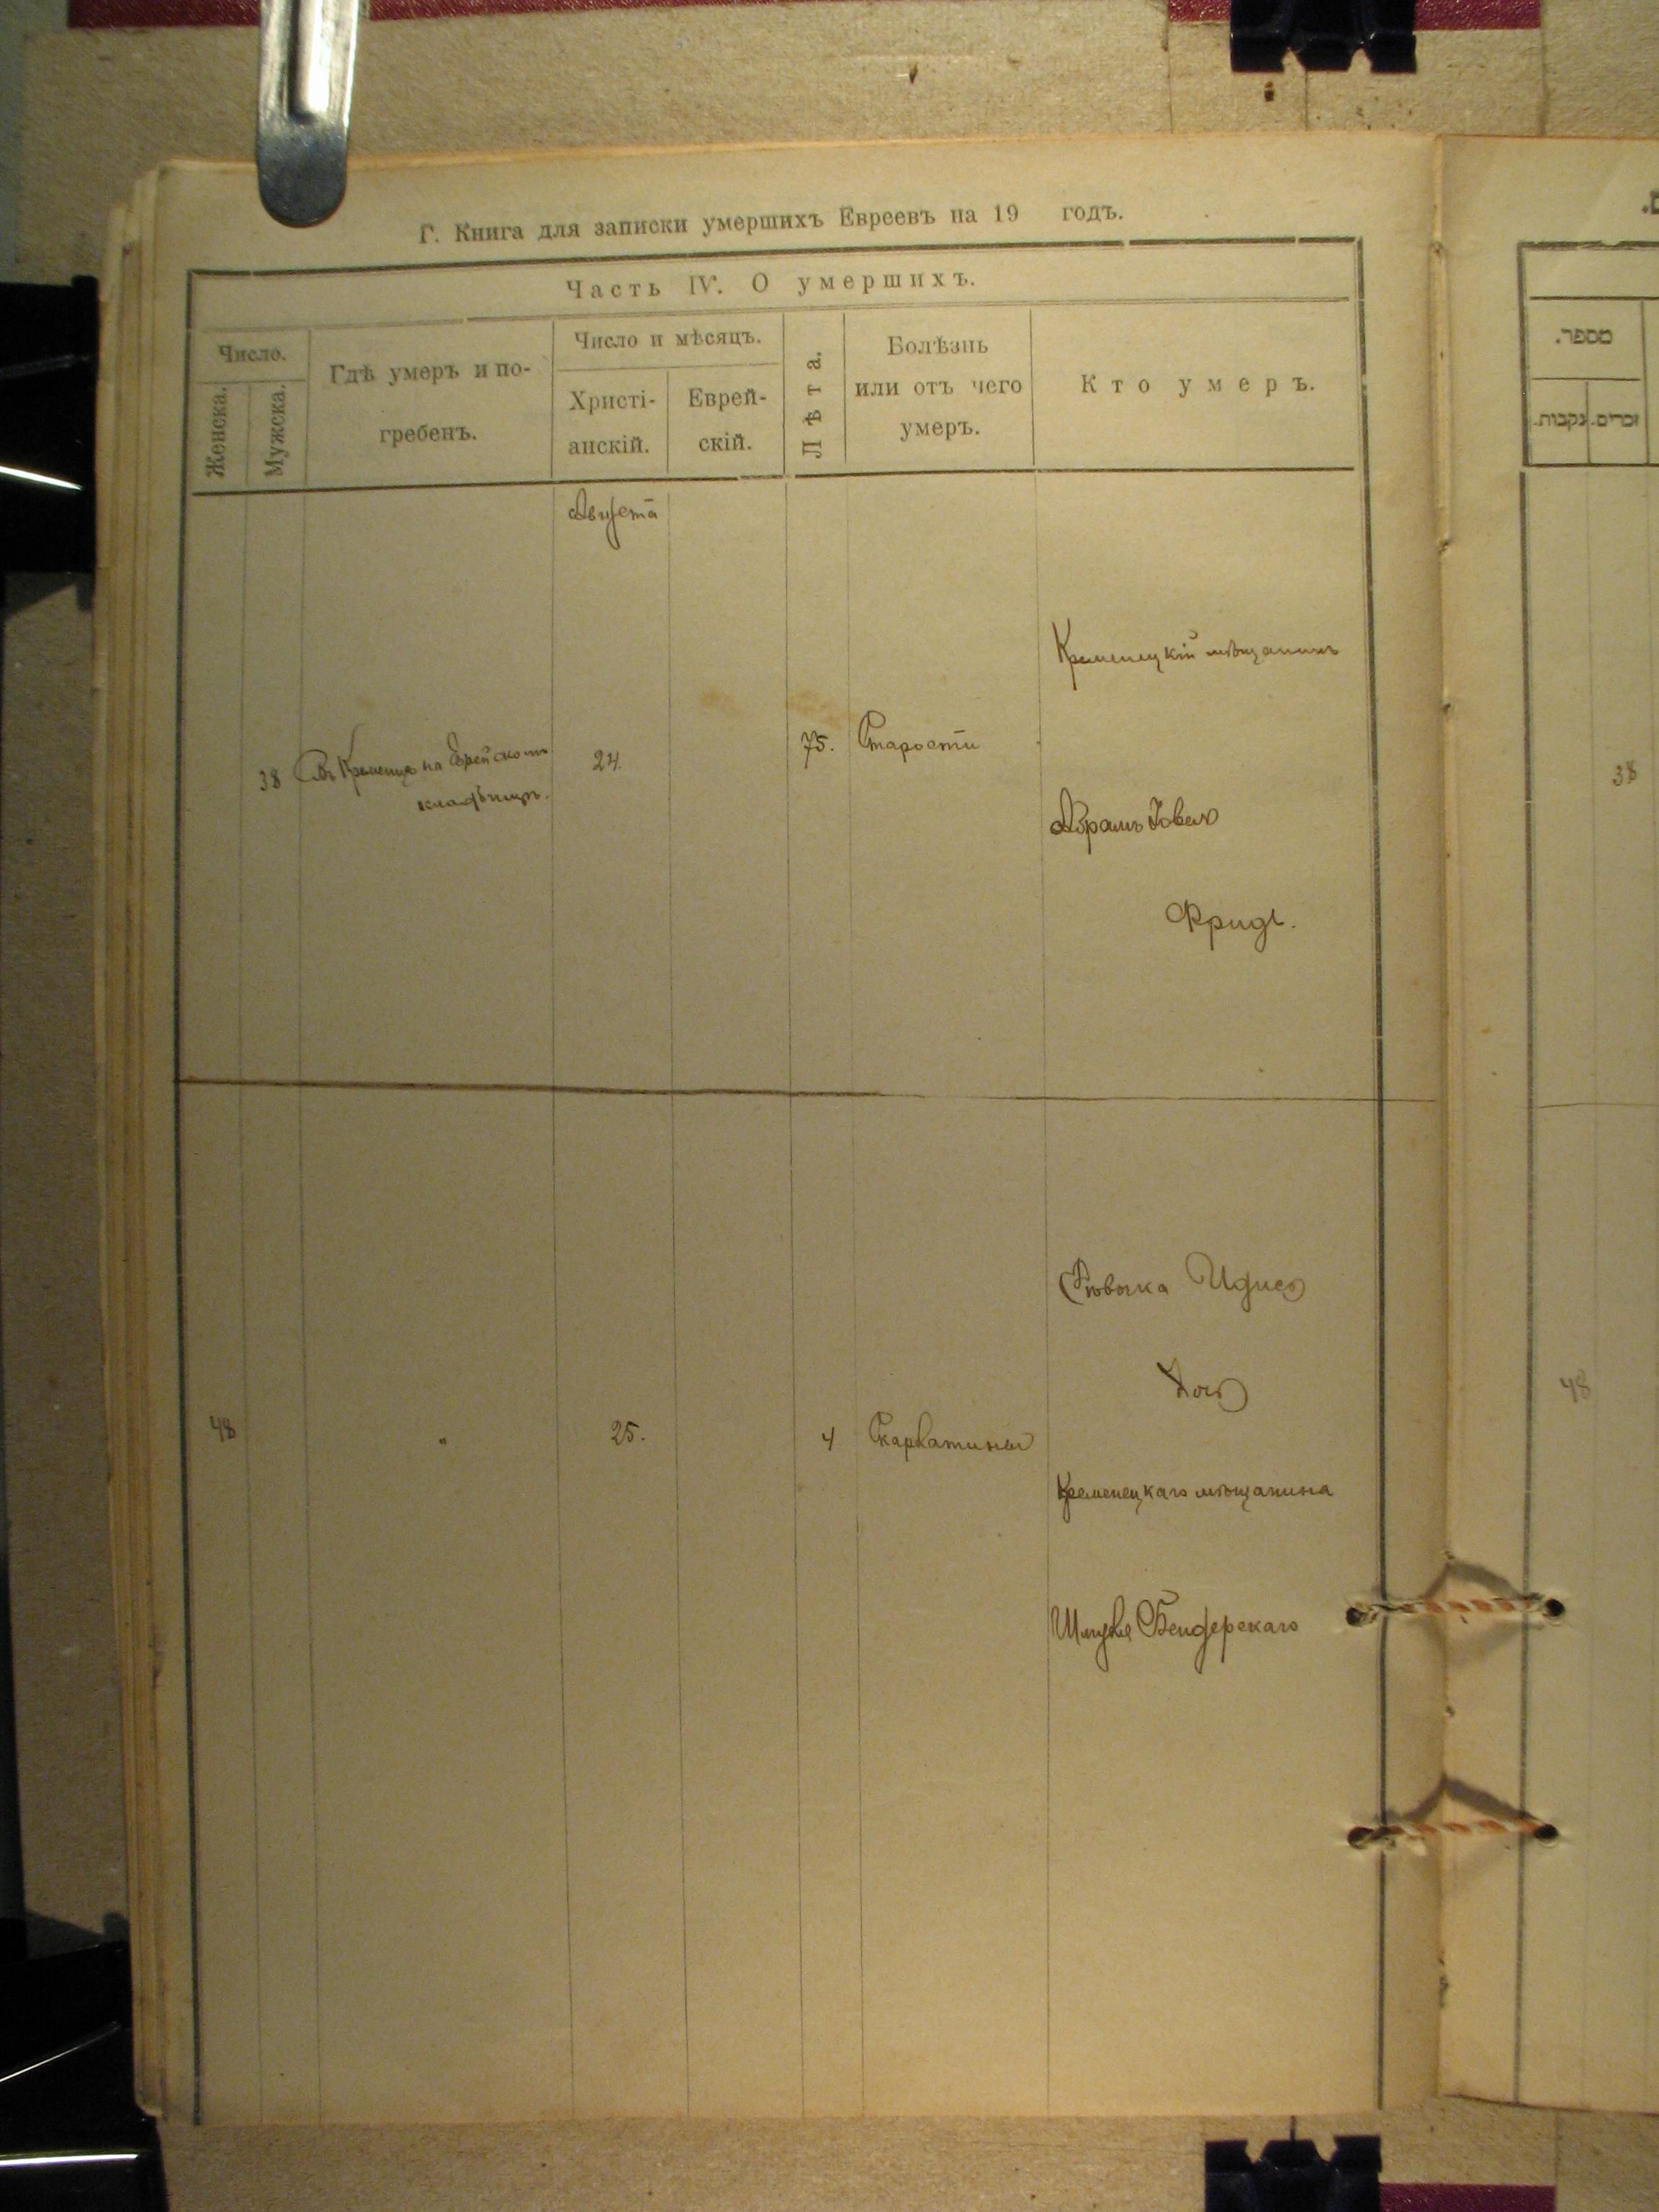 Г. Книга для записки умершихъ Евреевъ на 19 годъ.
Часть IV. О умершихъ.
Число.
Женска.
Мужска.
Гдѣ умеръ и по-
гребенъ.
Число и мѣсяцъ.
Христі-
анскій.
Еврей-
скій.
Лѣта.
Болѣзнь
или отъ чего
умеръ.
Кто умеръ.
Августа
38
Въ Кременцѣ на Еврейскомъ
кладбищѣ.
24.
75.
Старости
Кременецкій мѣщанинъ
Абрамъ
Фридъ.
48
"
25.
4
Скарлатины
Ривка
Дочь
Кременецкаго мѣщанина
Бендерскаго
מספר.
זכרים.
נקבות.
38
48